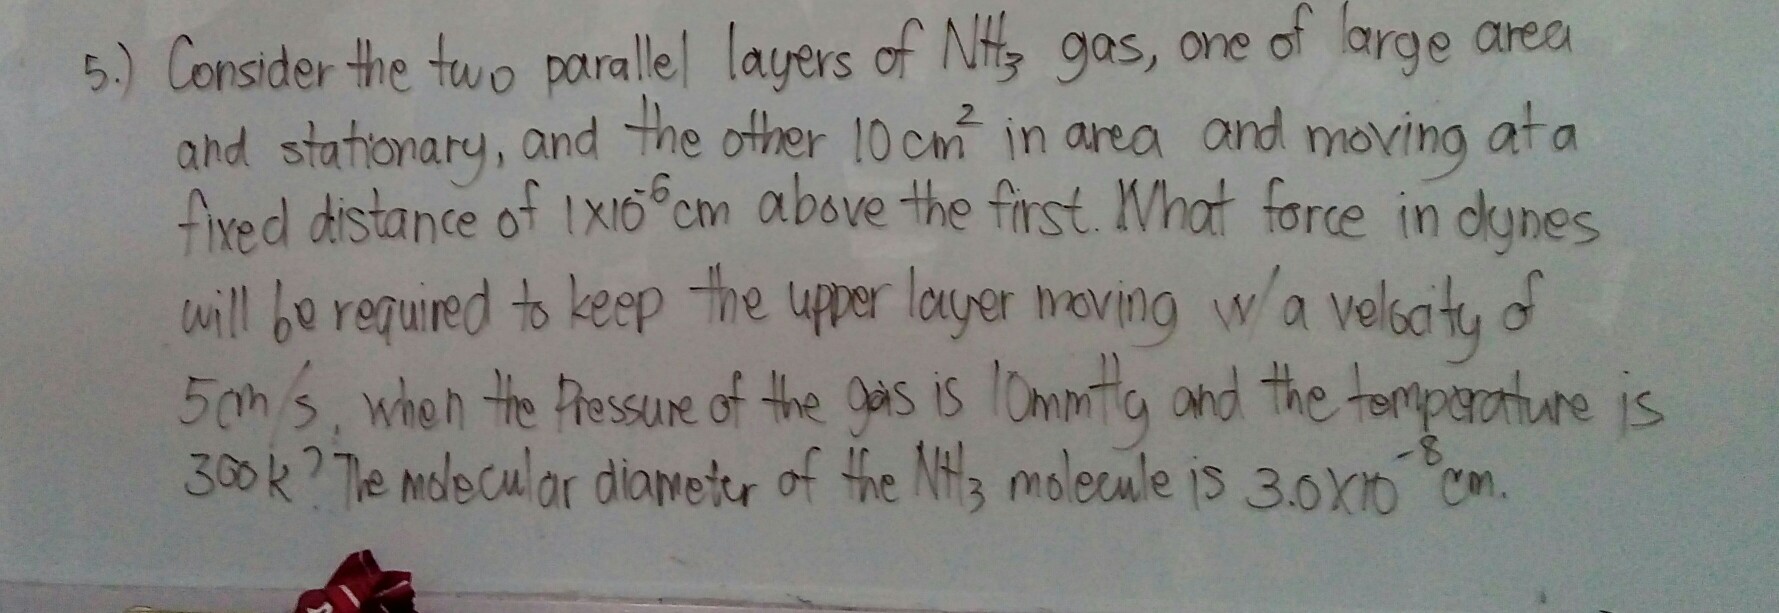 5.) Consider the two parallel layers of NH₃ gas, one of large area
and stationary, and the other 10 cm² in area and moving at a
fixed distance of 1x10⁻⁶ cm above the first. What force in dynes
will be required to keep the upper layer moving w/ a velocity of
5cm/s, when the Pressure of the gas is 10mmHg and the temperature is
300k? The molecular diameter of the NH₃ molecule is 3.0x10⁻⁸ cm.